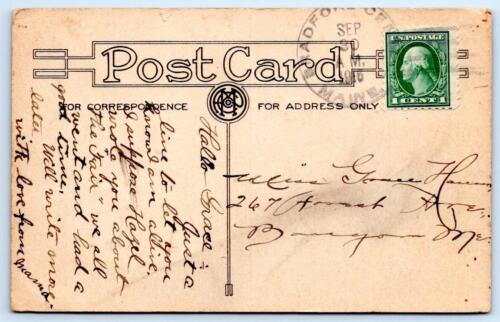 Post Card
FOR CORRESPONDENCE
FOR ADDRESS ONLY
BRADFORD CEN
SEP
30
A.M.
MAINE
U.S. POSTAGE
1 CENT 1
Hallo Grace:-
Just a
line to let you
know I am alive,
I suppose Hazel
wrote you about
the Fair & we all
went and had a
good time,
Will write more
later
with love from Mama
Miss Grace
267 Forest Ave.
Bangor Me.